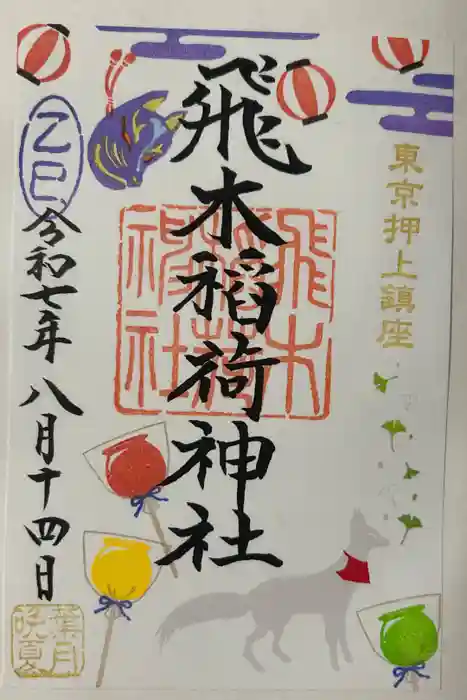 東京押上鎮座
飛木稲荷神社
飛木稲荷神社
乙巳
令和七年 八月十四日
葉月
晩夏